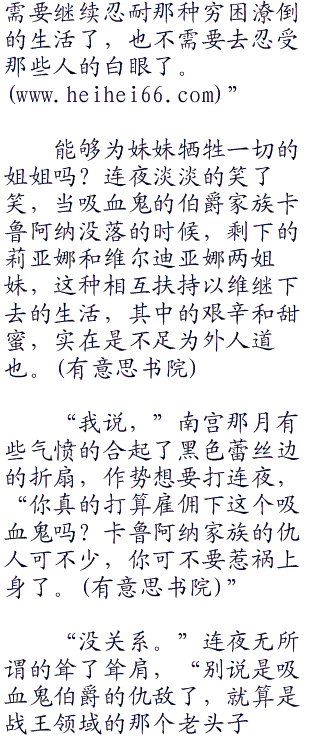 需要继续忍耐那种穷困潦倒
的生活了，也不需要去忍受
那些人的白眼了。
(www.heihei66.com)”
能够为妹妹牺牲一切的
姐姐吗？连夜淡淡的笑了
笑，当吸血鬼的伯爵家族卡
鲁阿纳没落的时候，剩下的
莉亚娜和维尔迪亚娜两姐
妹，这种相互扶持以维继下
去的生活，其中的艰辛和甜
蜜，实在是不足为外人道
也。(有意思书院)
“我说，”南宫那月有
些气愤的合起了黑色蕾丝边
的折扇，作势想要打连夜，
“你真的打算雇佣下这个吸
血鬼吗？卡鲁阿纳家族的仇
人可不少，你可不要惹祸上
身了。(有意思书院)”
“没关系。”连夜无所
谓的耸了耸肩，“别说是吸
血鬼伯爵的仇敌了，就算是
战王领域的那个老头子